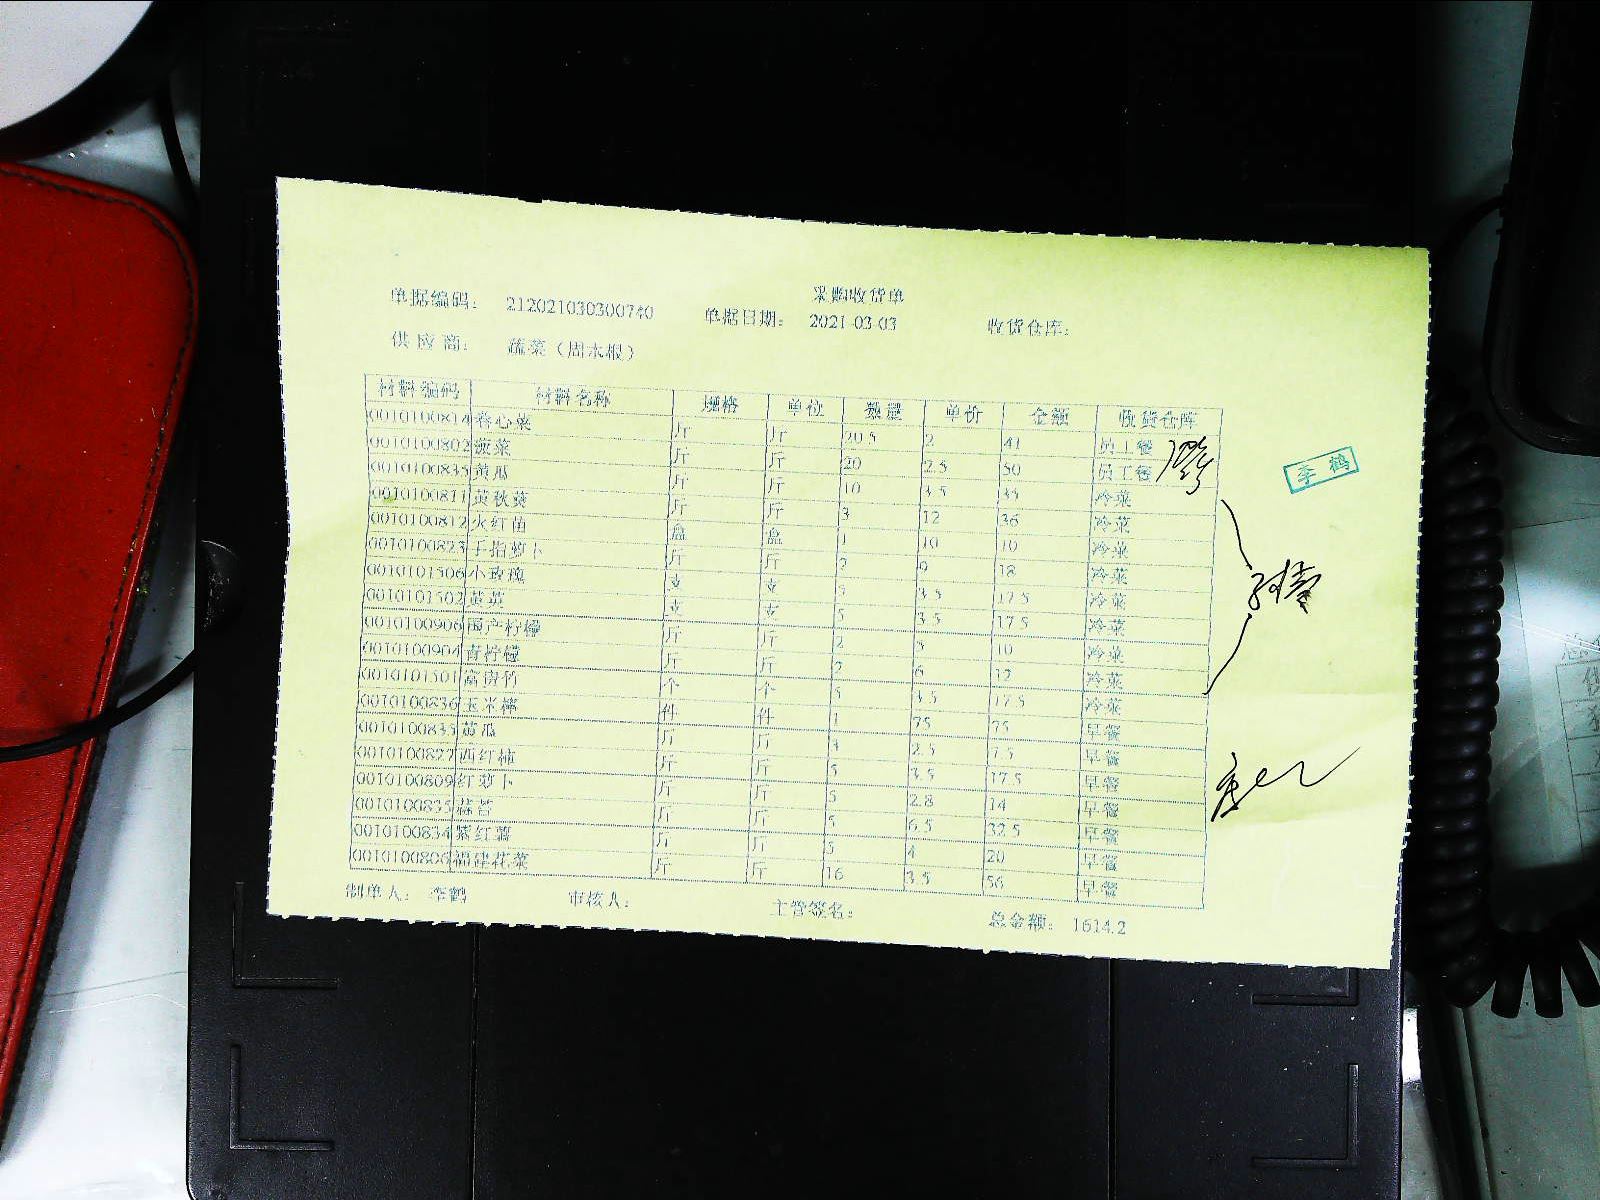 采购收货单
单据编码： 212021030300740 单据日期： 2021-03-03 收货仓库：
供应商： 蔬菜（周木根）
材料编码 材料名称 规格 单位 数量 单价 金额 收货仓库
0010100814 卷心菜 斤 斤 20.5 2 41 员工餐
0010100802 菠菜 斤 斤 20 2.5 50 员工餐
0010100835 黄瓜 斤 斤 10 3.5 35 冷菜
0010100811 黄秋葵 斤 斤 3 12 36 冷菜
0010100812 火红苗 盘 盘 1 10 10 冷菜
0010100823 手指萝卜 斤 斤 2 9 18 冷菜
0010101506 小玫瑰 支 支 5 3.5 17.5 冷菜
0010101502 黄英 支 支 5 3.5 17.5 冷菜
0010100906 国产柠檬 斤 斤 2 5 10 冷菜
0010100904 青柠檬 斤 斤 2 6 12 冷菜
0010101501 富贵竹 个 个 5 3.5 17.5 冷菜
0010100836 玉米棒 件 件 1 75 75 早餐
0010100835 黄瓜 斤 斤 3 2.5 7.5 早餐
0010100827 西红柿 斤 斤 5 3.5 17.5 早餐
0010100809 红萝卜 斤 斤 5 2.8 14 早餐
0010100835 蒜苔 斤 斤 5 6.5 32.5 早餐
0010100834 紫红薯 斤 斤 5 4 20 早餐
0010100806 福建花菜 斤 斤 16 3.5 56 早餐
制单人： 李鹤 审核人： 主管签名： 总金额： 1614.2
李鹤